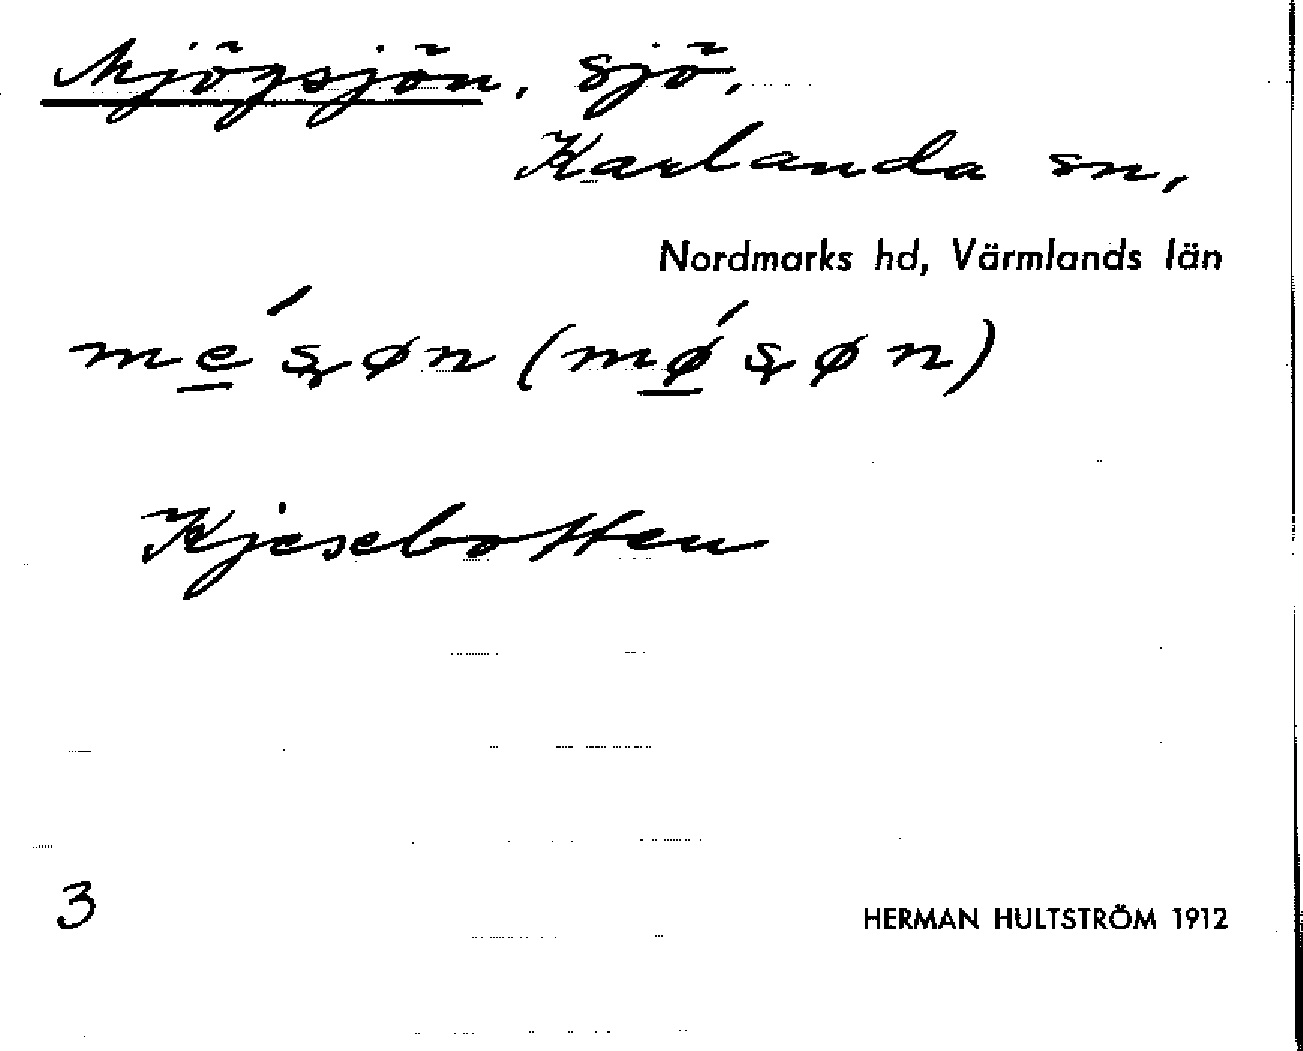 Mjögsjön, sjö,
Karlanda sn,
Nordmarks hd, Värmlands län
mé̲ʂøn (mǿ̲ʂøn)
Kjesebotten
3
HERMAN HULTSTRÖM 1912